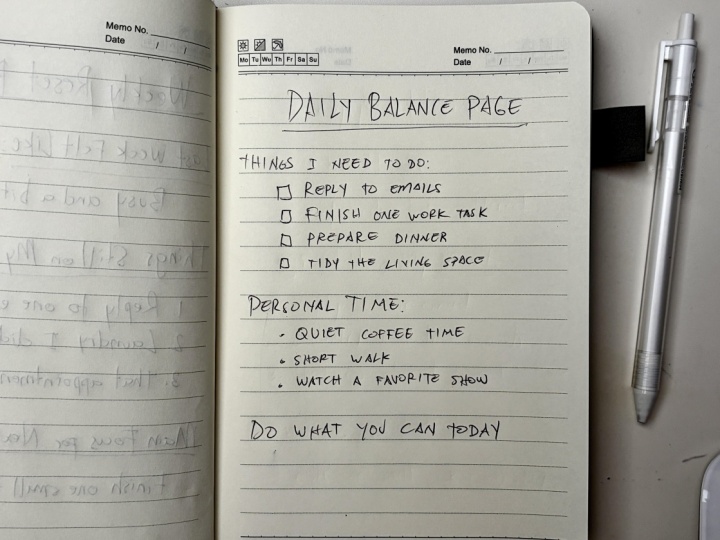 Memo No.
Date / /
Memo No.
Date / /
Mo Tu Wu Th Fr Sa Su
DAILY BALANCE PAGE
THINGS I NEED TO DO:
REPLY TO EMAILS
FINISH ONE WORK TASK
PREPARE DINNER
TIDY THE LIVING SPACE
PERSONAL TIME:
• QUIET COFFEE TIME
• SHORT WALK
• WATCH A FAVORITE SHOW
DO WHAT YOU CAN TODAY